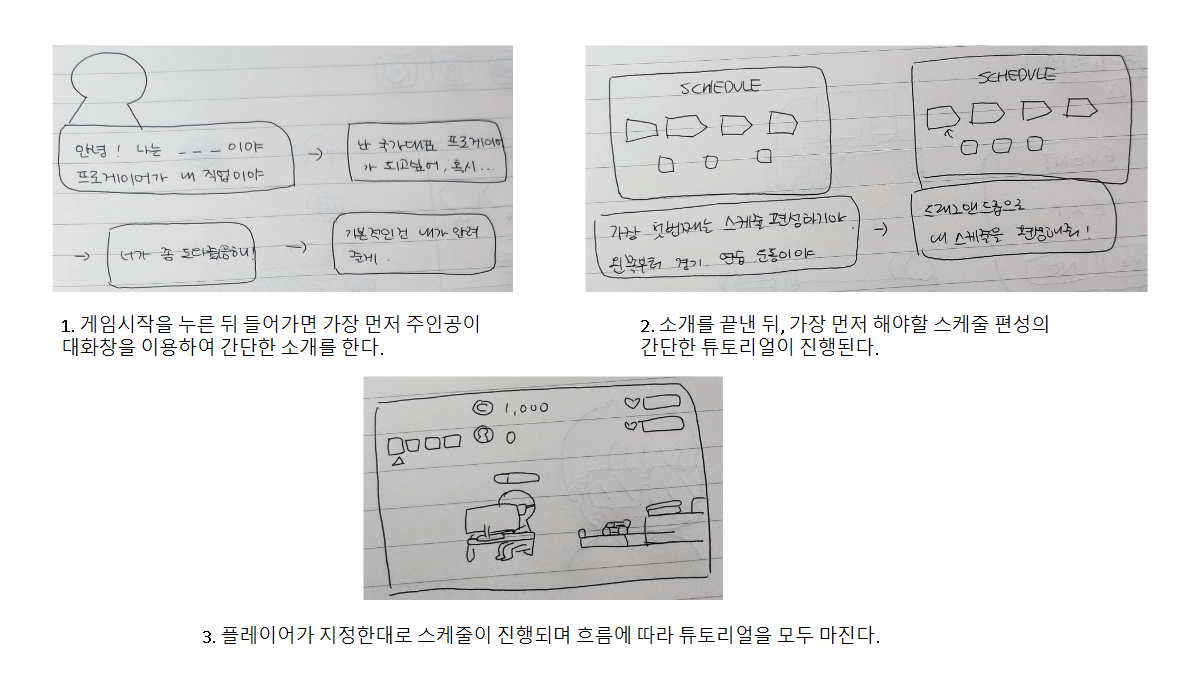 안녕! 나는 _ _ _ 이야
프로게이머가 내 직업이야
난 국가대표 프로게이머
가 되고싶어, 혹시...
너가 좀 도와줄
기본적인건 내가 알려
줄게.
1. 게임시작을 누른 뒤 들어가면 가장 먼저 주인공이
대화창을 이용하여 간단한 소개를 한다.
SCHEDULE
가장 첫번째는 스케줄 편성하기야.
왼쪽부터 경기 연습 운동이야
SCHEDULE
드래그앤드롭으로
내 스케줄을 편성해줘!
2. 소개를 끝낸 뒤, 가장 먼저 해야할 스케줄 편성의
간단한 튜토리얼이 진행된다.
C 1,000
0
3. 플레이어가 지정한대로 스케줄이 진행되며 흐름에 따라 튜토리얼을 모두 마진다.